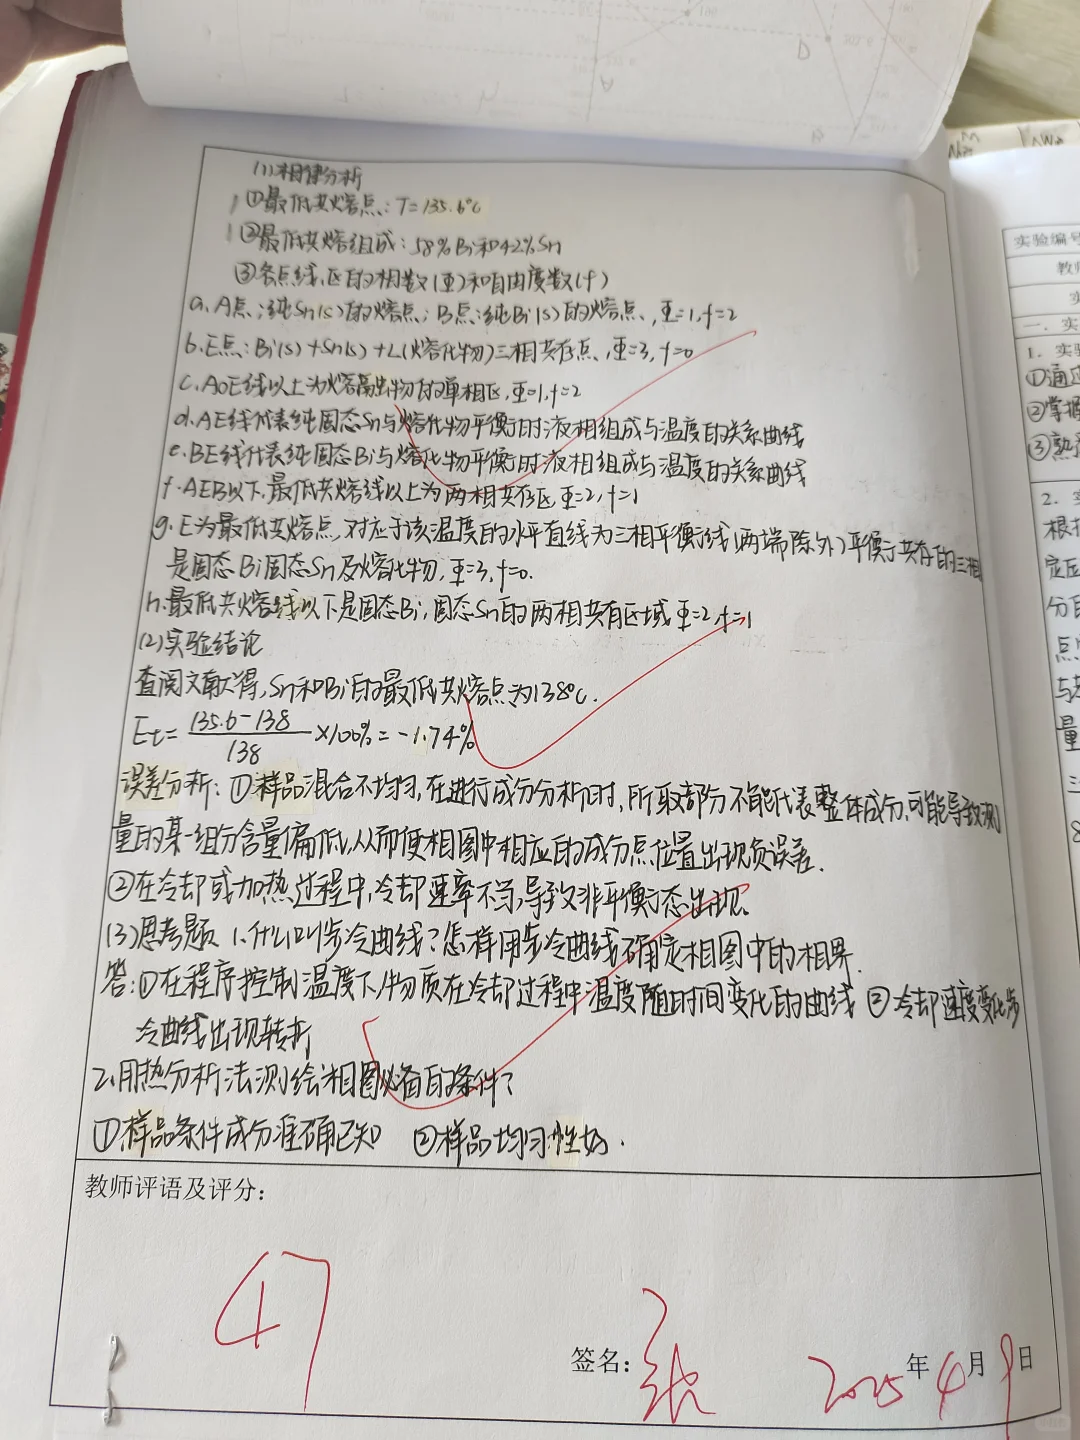 (1)相律分析
①最低共熔点:T=135.6℃
②最低共熔组成:58%Bi和42%Sn
③各点、线、区的相数(Φ)和自由度数(f)
a. A点:纯Sn(s)的熔点;B点:纯Bi(s)的熔点、,Φ=1,f=2
b. E点:Bi(s)+Sn(s)+L(熔化物)三相共存点、,Φ=3,f=0
c. AoE线以上为熔 物的单相区,Φ=1,f=2
d. AE线代表纯固态Sn与熔化物平衡时液相组成与温度的关系曲线
e. BE线代表纯固态Bi与熔化物平衡时液相组成与温度的关系曲线
f. AEB以下,最低共熔线以上为两相共存区,Φ=2,f=1
g. E为最低共熔点,对应于该温度的水平直线为三相平衡线(两端除外)平衡于共存的三相
是固态Bi固态Sn及熔化物,Φ=3,f=0.
h. 最低共熔线以下是固态Bi,固态Sn的两相共有区域 Φ=2,f=1
(2)实验结论
查阅文献得,Sn和Bi的最低共熔点为138℃.
Et= 135.6-138/138 ×100%=-1.74%
误差分析:①样品混合不均匀,在进行成分分析时,所取部分不能代表整体成分,可能导致测
量的某一组分含量偏低,从而使相图中相应的成分点位置出现负误差.
②在冷却或加热过程中,冷却速率不匀,导致非平衡态出现.
(3)思考题 1.什么叫步冷曲线?怎样用步冷曲线确定相图中的相界.
答:①在程序控制温度下,物质在冷却过程中温度随时间变化的曲线 ②冷却速度变化步
冷曲线出现转折
2.用热分析法测绘相图必备的条件?
①样品条件成分准确已知 ②样品均匀性好.
教师评语及评分:
47
签名: 张 2025年4月9日
实验编号
教师
一.实
1.实验
①通过
②掌握
③熟
2.实
根
定
分
点
与
量
三